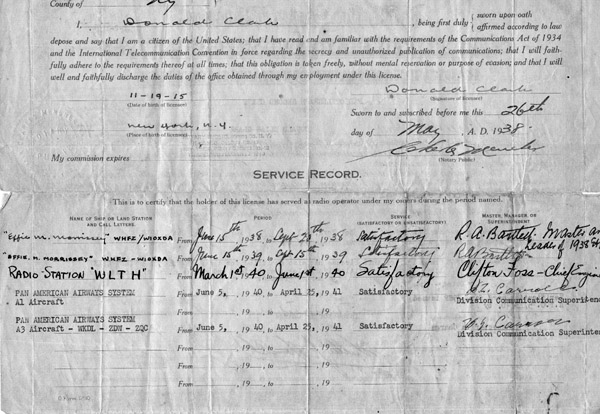 County of Ny
I, Donald Clark , being first duly { sworn upon oath
affirmed according to law
depose and say that I am a citizen of the United States; that I have read and am familiar with the requirements of the Communications Act of 1934
and the International Telecommunication Convention in force regarding the secrecy and unauthorized publication of communications; that I will faith-
fully adhere to the requirements thereof at all times; that this obligation is taken freely, without mental reservation or purpose of evasion; and that I will
well and faithfully discharge the duties of the office obtained through my employment under this license.
11-19-15
(Date of birth of licensee)
Donald Clark
(Signature of licensee)
Sworn to and subscribed before me this 26th
New York, N.Y.
(Place of birth of licensee)
day of May , A. D. 1938.
My commission expires
(Notary Public)
SERVICE RECORD.
This is to certify that the holder of this license has served as radio operator under my orders during the period named.
NAME OF SHIP OR LAND STATION AND CALL LETTERS PERIOD SERVICE (SATISFACTORY OR UNSATISFACTORY) MASTER, MANAGER OR SUPERINTENDENT
"Effie M. Morrissey" WHFZ/W10XDA From June 15th 1938 to Sept 28th 1938 Satisfactory R. A. Bartlett Master and
Leader of 1938
"EFFIE M. MORRISSEY" WHFZ-W10XDA From June 15th 1939 to Sept 15th 1939 Satisfactory RABartlett
RADIO STATION "WLTH" From March 1st 1940 to June 1st 1940 Satisfactory Clifton Foss-Chief Engin
PAN AMERICAN AIRWAYS SYSTEM
A1 Aircraft From June 5, 1940 to April 25, 1941 Satisfactory
Division Communication Superinten
PAN AMERICAN AIRWAYS SYSTEM
A3 Aircraft - WKDL - ZDW - ZQC From June 5, 1940 to April 25, 1941 Satisfactory
Division Communication Superinten
From , 19 , to , 19
From , 19 , to , 19
From , 19 , to , 19
From , 19 to , 19